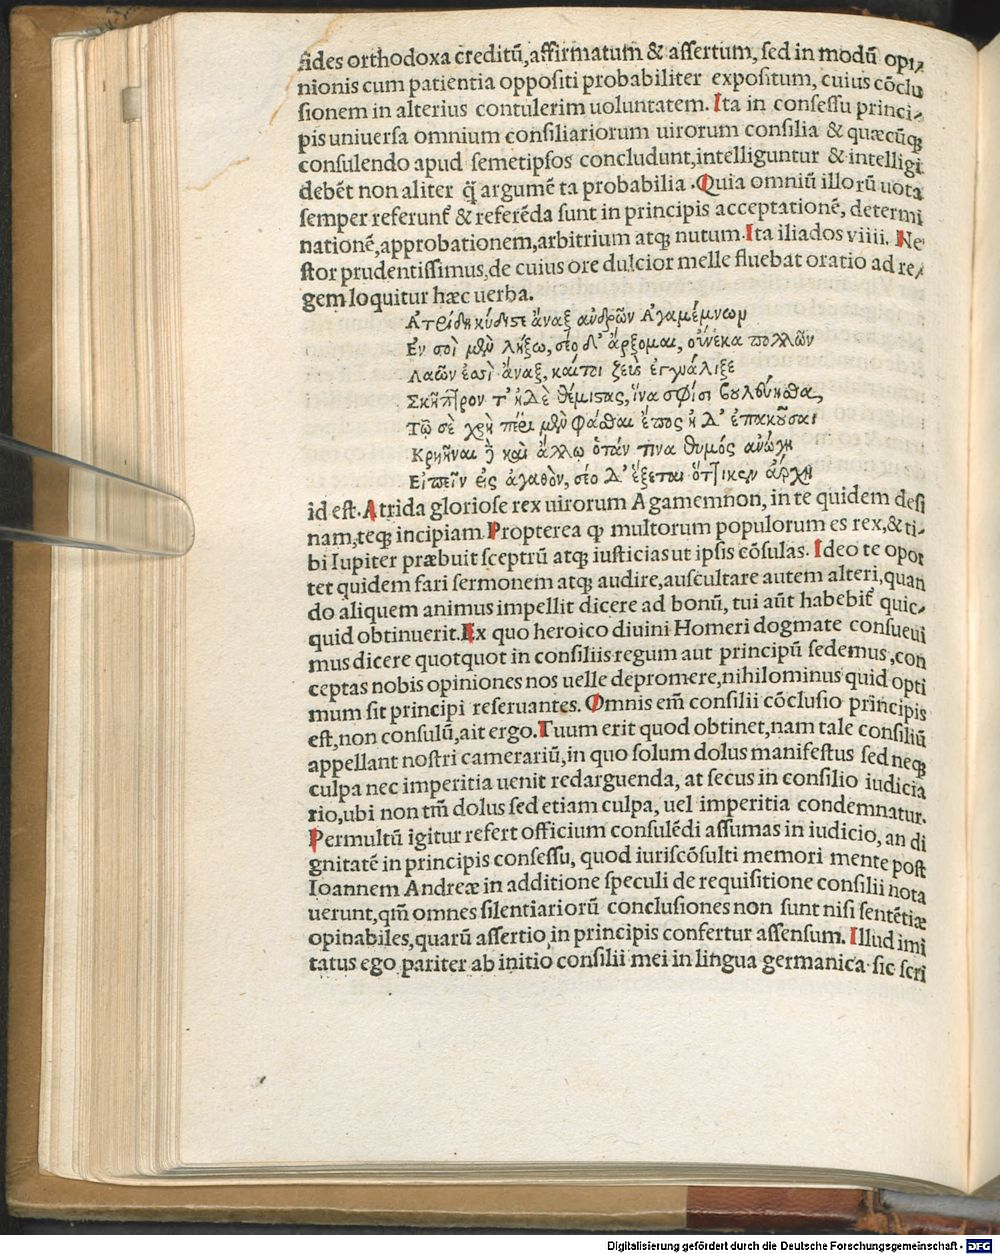 fides orthodoxa creditū, affirmatum & assertum, sed in modū opi⸗
nionis cum patientia oppositi probabiliter expositum, cuius cōclu
sionem in alterius contulerim uoluntatem. Ita in consessu princi⸗
pis uniuersa omnium consiliariorum uirorum consilia & quæcūqꝫ
consulendo apud semetipsos concludunt, intelliguntur & intelligi
debēt non aliter q̄ argumē ta probabilia. Quia omniū illorū uota
semper referunt᷑ & referēda sunt in principis acceptationē, determi
nationē, approbationem, arbitrium atqꝫ nutum. Ita iliados viiii. Ne⸗
stor prudentissimus, de cuius ore dulcior melle fluebat oratio ad re⸗
gem loquitur hæc uerba.
Ατρείδη κύδιστε ἄναξ ανδρῶν Αγαμέμνωμ
Εν σοὶ μὲν λήξω, σέο δ' ἄρξομαι, οὕνεκα πολλῶν
Λαῶν ἐσσὶ ἄναξ, καίτοι ζεὺς ἐγγυάλιξε
Σκῆπτρον τ' ἠδὲ θέμιστας, ἵνα σφίσι βουλεύησθα,
Τῷ σὲ χρὴ πέρι μὲν φάσθαι ἔπος ἠ δ' ἐπακοῦσαι
Κρηῆναι δ καὶ ἄλλῳ ὁτάν τινα θυμός ανώγη
Ειπεῖν εἰς ἀγαθὸν, σέο δ' ἕξεται ὅττικεν ἀρχη
id est. Atrida gloriose rex uirorum Agamemnon, in te quidem desi
nam, teqꝫ incipiam. Propterea qꝫ multorum populorum es rex, & ti⸗
bi Iupiter præbuit sceptrū atqꝫ iusticias ut ipsis cōsulas. Ideo te opor
tet quidem fari sermonem atqꝫ audire, auscultare autem alteri, quan
do aliquem animus impellit dicere ad bonū, tui aūt habebit᷑ quic⸗
quid obtinuerit. Ex quo heroico diuini Homeri dogmate consueui
mus dicere quotquot in consiliis regum aut principū sedemus, con
ceptas nobis opiniones nos uelle depromere, nihilominus quid opti
mum sit principi reseruantes. Omnis em̄ consilii cōclusio principis
est, non consulū, ait ergo. Tuum erit quod obtinet, nam tale consiliū
appellant nostri camerariū, in quo solum dolus manifestus sed neqꝫ
culpa nec imperitia uenit redarguenda, at secus in consilio iudicia
rio, ubi non tm̄ dolus sed etiam culpa, uel imperitia condemnatur.
Permultū igitur refert officium consulēdi assumas in iudicio, an di
gnitatē in principis consessu, quod iuriscōsulti memori mente post
Ioannem Andreæ in additione speculi de requisitione consilii nota
uerunt, qm̄ omnes silentiariorū conclusiones non sunt nisi sentētiæ
opinabiles, quarū assertio in principis confertur assensum. Illud imi
tatus ego pariter ab initio consilii mei in lingua germanica sic scri
Digitalisierung gefördert durch die Deutsche Forschungsgemeinschaft - DFG